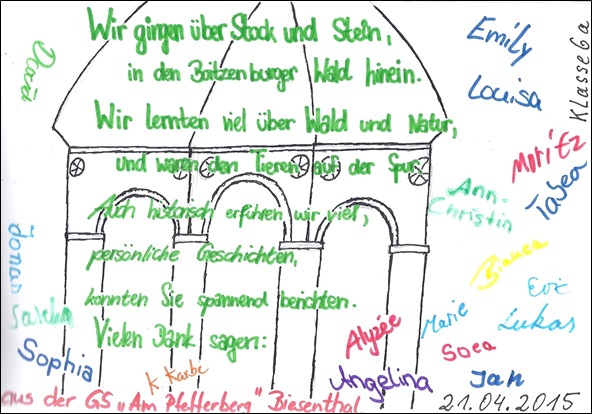 Wir gingen über Stock und Stein,
in den Boitzenburger Wald hinein.
Wir lernten viel über Wald und Natur,
und waren den Tieren auf der Spur.
Auch historisch erfuhren wir viel,
persönliche Geschichten,
konnten Sie spannend berichten.
Vielen Dank sagen:
Emily
Louisa
Klasse 6a
Moritz
Tabea
Ann-
Christin
Bianca
Evi
Lukas
Marie
Alyzée
Jonas
Sascha
Sophia
K. Karbe
Angelina
Jan
aus der GS „Am Pfefferberg" Biesenthal
21.04.2015